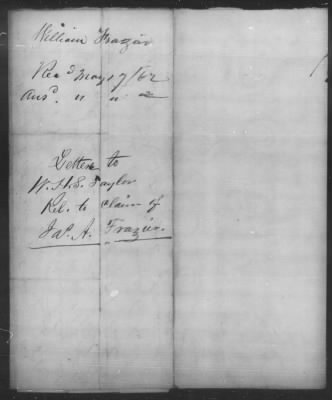 William Frazier
Recd May 17/62
Ansd. " "
Letter to
W. H. S. Taylor
Rel. to claim of
Jas. A. Frazier.